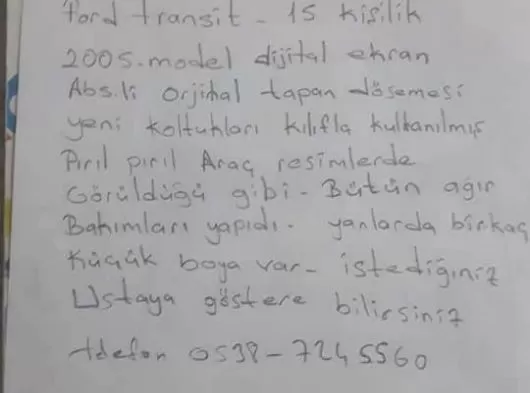 ford transit - 15 kişilik
2005.model dijital ekran
Abs.li orjinal tapan döşemesi
yeni koltukları kılıfla kullanılmış
Pırıl pırıl Araç resimlerde
Görüldüğü gibi - Bütün ağır
Bakımları yapıdı. yanlarda birkaç
Küçük boya var - istediğiniz
Ustaya göstere bilirsiniz
telefon 0538-7245560